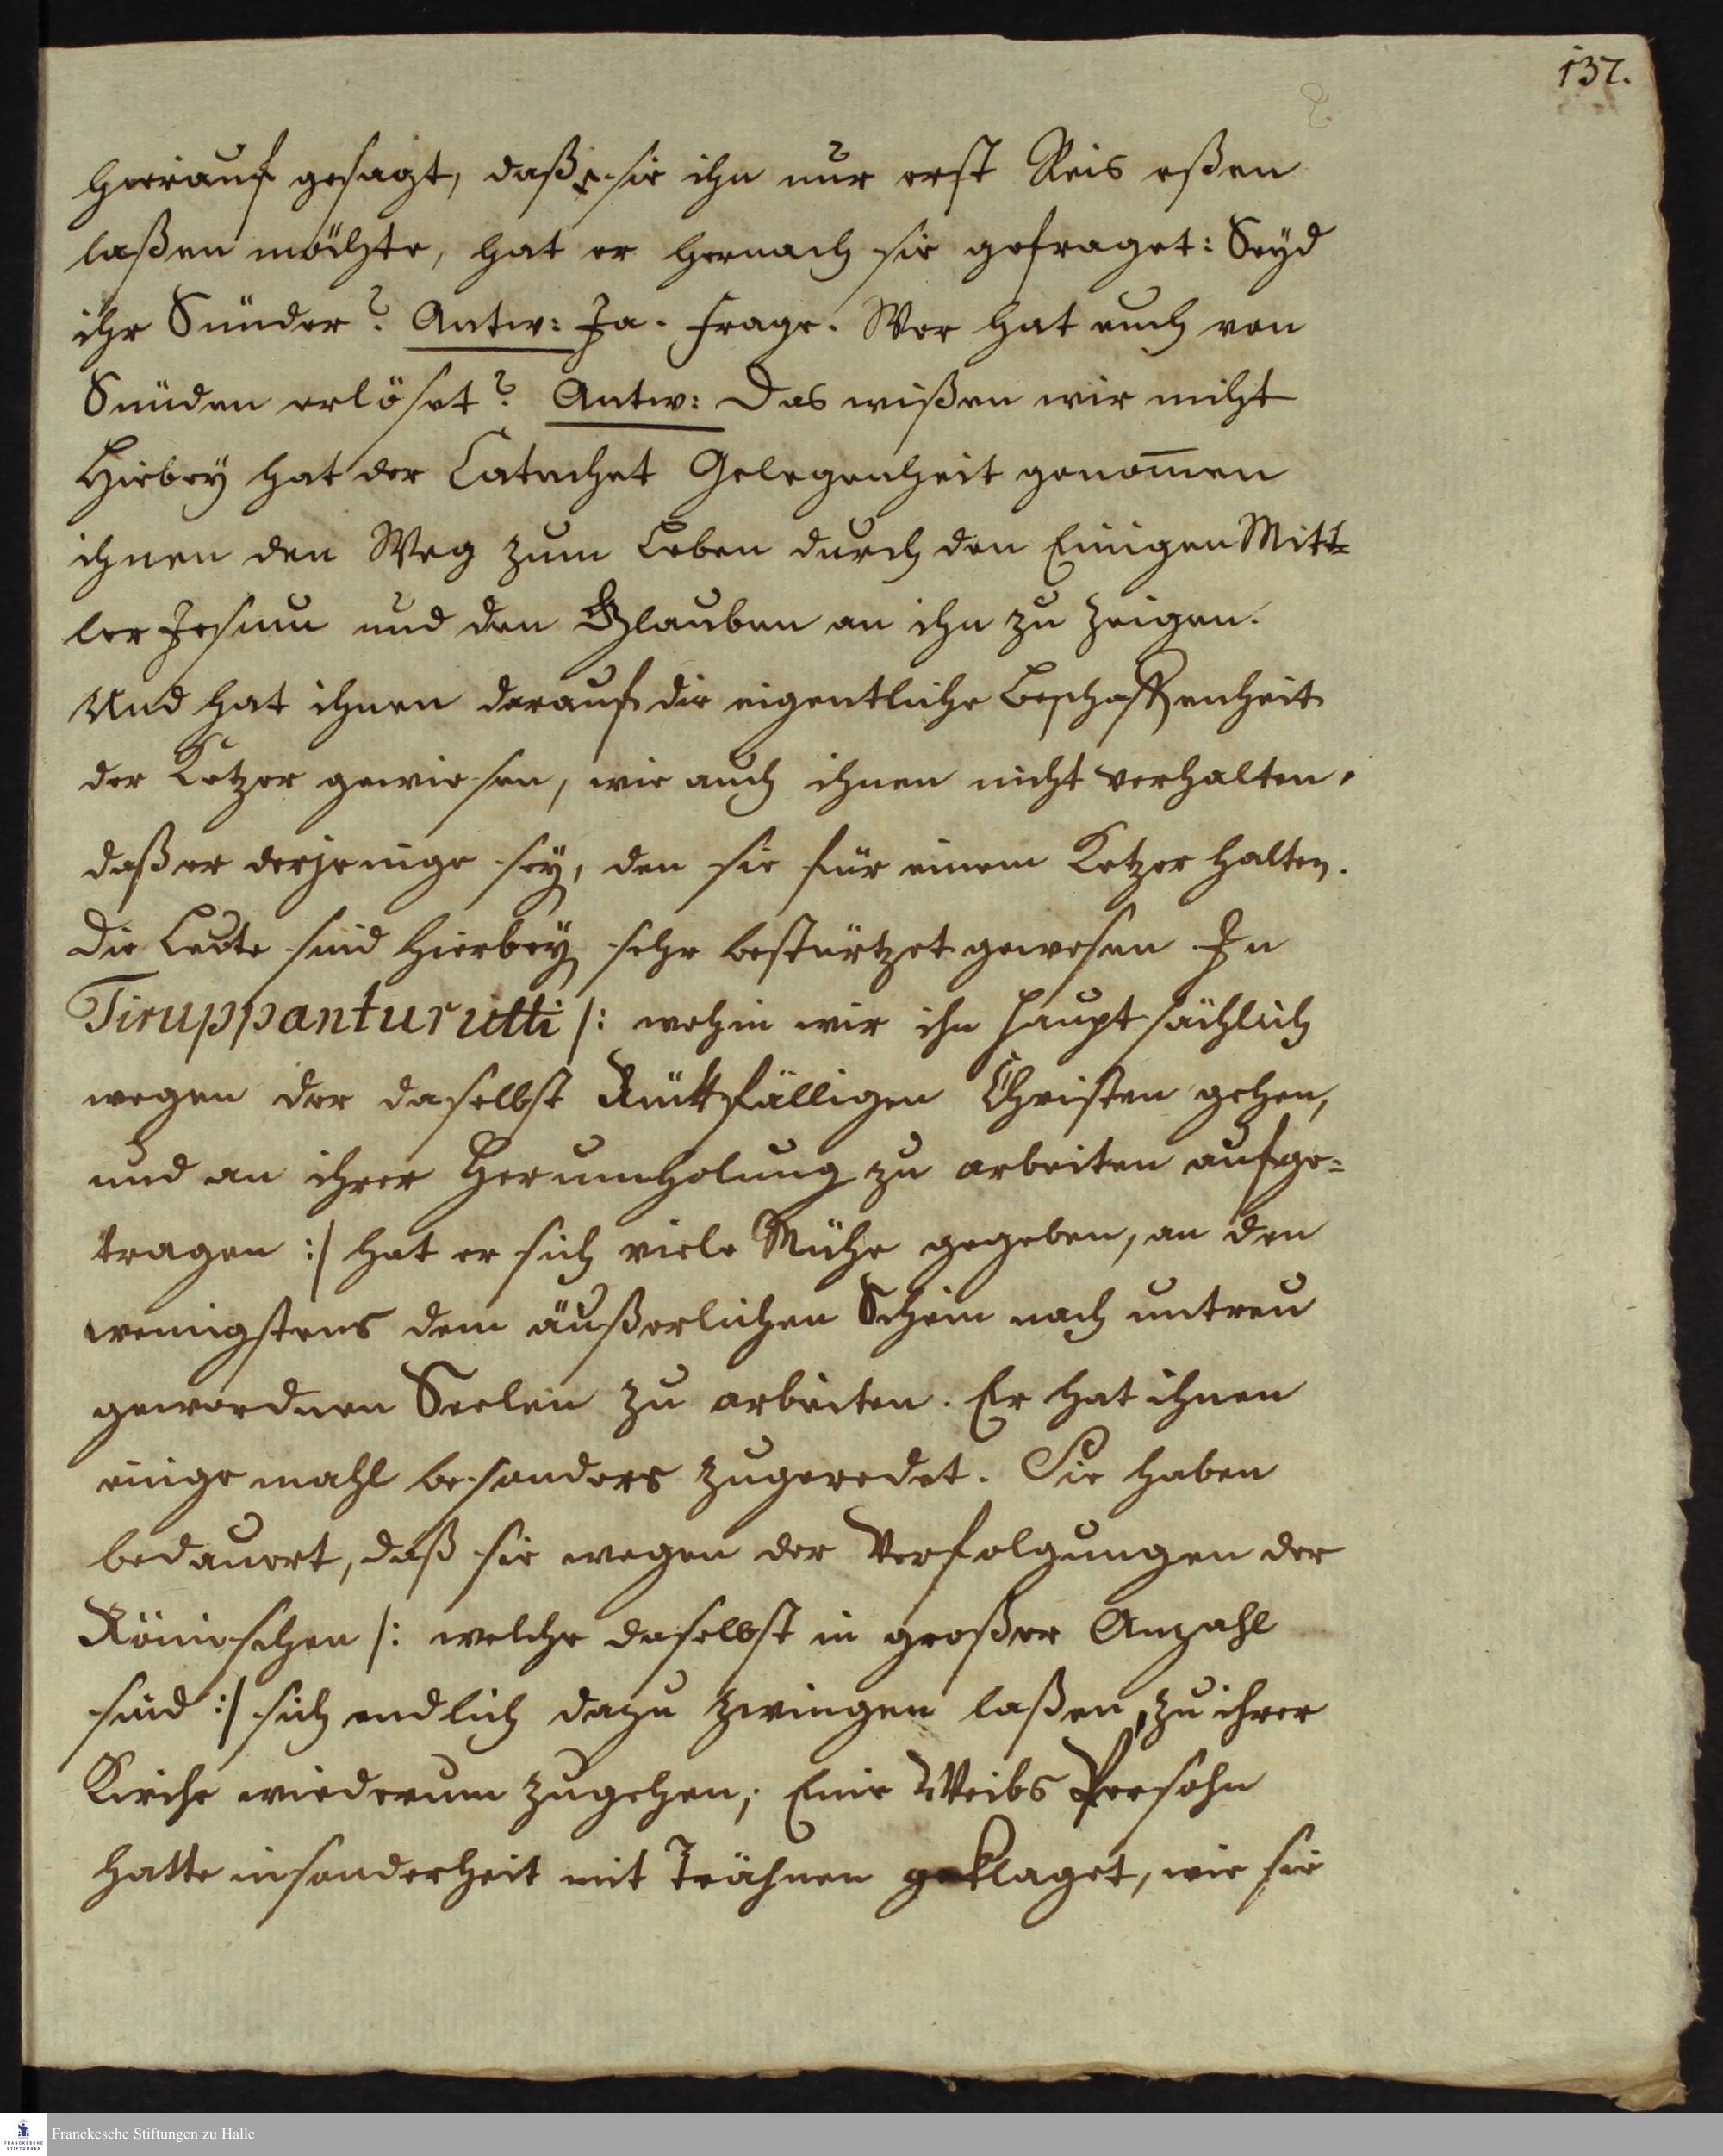 137.
hierauf gesagt, daß sie ihn nur erst Reis eßen
laßen möchte, hat er hernach sie gefraget: Seyd
ihr Sünder? Antw: Ja. Frage. Wer hat euch von
Sünden erlöset? Antw: Das wißen wir nicht
Hiebey hat der Catechet Gelegenheit genom̅en
ihnen den Weg zum Leben durch den Einigen Mitt=
ler Jesum und den Glauben an ihn zu zeigen.
Und hat ihnen darauf die eigentliche Beschaffenheit
der Ketzer gewiesen, wie auch ihnen nicht verhalten,
daß er derjenige sey, den sie für einem Ketzer halten.
Die Leute sind hierbey sehr bestürtzet gewesen In
Tiruppanturutti /: wohin wir ihn hauptsächlich
wegen der daselbst Rückfälligen Christen gehen,
und an ihrer Herumholung zu arbeiten aufge=
tragen :/ hat er sich viele Mühe gegeben, an den
wenigstens dem äußerlichen Schein nach untreu
gewordnen Seelen zu arbeiten. Er hat ihnen
einige mahl besonders zugeredet. Sie haben
bedauert, daß sie wegen der Verfolgungen der
Römischen /: welche daselbst in großer Anzahl
sind :/ sich endlich dazu zwingen laßen, zu ihrer
Kirche wiederum zugehen; Eine Weibs Persohn
hatte insonderheit mit Trähnen geklaget, wie sie
Franckesche Stiftungen zu Halle
FRANCKESCHE
STIFTUNGEN